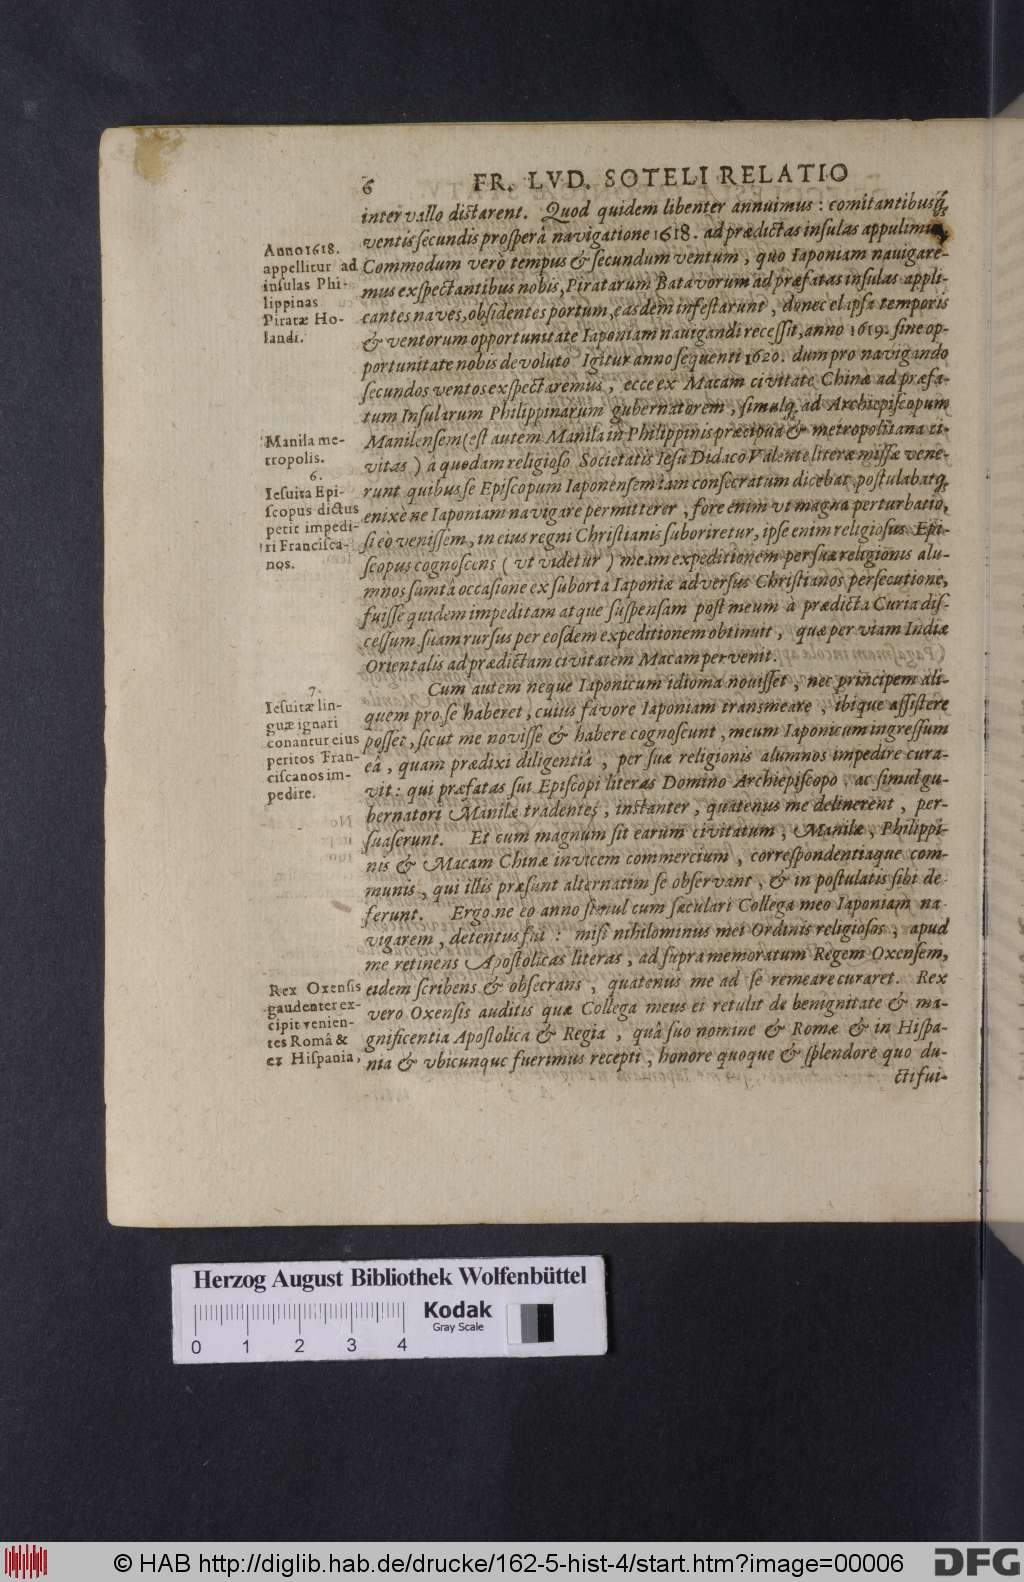 6 FR. LVD. SOTELI RELATIO
intervallo distarent. Quod quidem libenter annuimus: comitantibusq́;
ventis secundis prosperâ navigatione 1618. ad prædictas insulas appulimus.
Commodum verò tempus & secundum ventum, quo Iaponiam navigare-
mus exspectantibus nobis, Piratarum Batavorum ad præfatas insulas appli-
cantes naves, obsidentes portum, easdem infestarunt, donec elapsa temporis
& ventorum opportunitate Iaponiam navigandi recessit, anno 1619. sine op-
portunitate nobis devoluto Igitur anno sequenti 1620. dum pro navigando
secundos ventos exspectaremus, ecce ex Macam civitate Chinæ ad præfa-
tum Insularum Philippinarum gubernatorem, simulq́; ad Archiepiscopum
Manilensem (est autem Manila in Philippinis præcipua & metropolitana ci-
vitas) à quodam religioso Societatis Iesu Didaco Valente literæ missæ vene-
runt quibus se Episcopum Iaponensem iam consecratum dicebat, postulabatq́;
enixè ne Iaponiam navigare permitterer, fore enim vt magna perturbatio,
si eo venissem, in eius regni Christianis suboriretur, ipse enim religiosus Epi-
scopus cognoscens (vt videtur) meam expeditionem per suæ religionis alu-
mnos sumtâ occasione ex suborta Iaponiæ adversus Christianos persecutione,
fuisse quidem impeditam atque suspensam post meum à prædicta Curia dis-
cessum, suam rursus per eosdem expeditionem obtinuit, quæ per viam Indiæ
Orientalis ad prædictam civitatem Macam pervenit.
Cum autem neque Iaponicum idioma novisset, nec principem ali-
quem pro se haberet, cuius favore Iaponiam transmeare, ibique assistere
posset, sicut me novisse & habere cognoscunt, meum Iaponicum ingressum
eâ, quam prædixi diligentiâ, per suæ religionis alumnos impedire cura-
vit: qui præfatas sui Episcopi literas Domino Archiepiscopo. ac simul gu-
bernatori Manilæ tradentes, instanter, quatenus me detinerent, per-
suaserunt. Et cum magnum sit earum civitatum, Manilæ, Philippi-
nis & Macam Chinæ invicem commercium, correspondentiaque com-
munis, qui illis præsunt alternatim se observant, & in postulatis sibi de-
ferunt. Ergo ne eo anno simul cum sæculari Collega meo Iaponiam na-
vigarem, detentus fui: misi nihilominus mei Ordinis religiosos, apud
me retinens Apostolicas literas, ad supra memoratum Regem Oxensem,
eidem scribens & obsecrans, quatenus me ad se remeare curaret. Rex
vero Oxensis auditis quæ Collega meus ei retulit de benignitate & ma-
gnificentia Apostolica & Regia, quâ suo nomine & Romæ & in Hispa-
nia & vbicunque fuerimus recepti, honore quoque & splendore quo du-
cti fui-
Anno 1618.
appellitur ad
insulas Phi-
lippinas
Piratæ Ho-
landi.
Manila me-
tropolis.
6.
Iesuita Epi-
scopus dictus
petit impedi-
ri Francisca-
nos.
7.
Iesuitæ lin-
guæ ignari
conantur eius
peritos Fran-
ciscanos im-
pedire.
Rex Oxensis
gaudenter ex-
cipit venien-
tes Româ &
ex Hispania,
Herzog August Bibliothek Wolfenbüttel
Kodak
Gray Scale
0 1 2 3 4
© HAB http://diglib.hab.de/drucke/162-5-hist-4/start.htm?image=00006
DFG